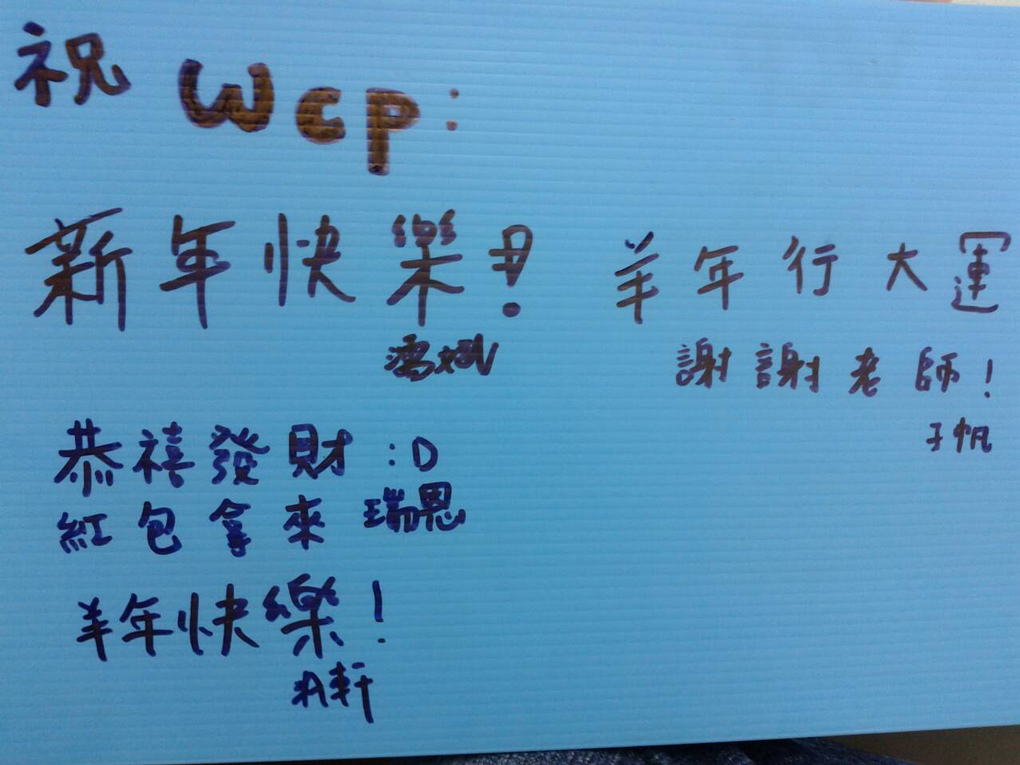 祝 wcp:
新年快樂!
羊年行大運
謝謝老師!
子帆
恭禧發財 :D
紅包拿來 瑞恩
羊年快樂!